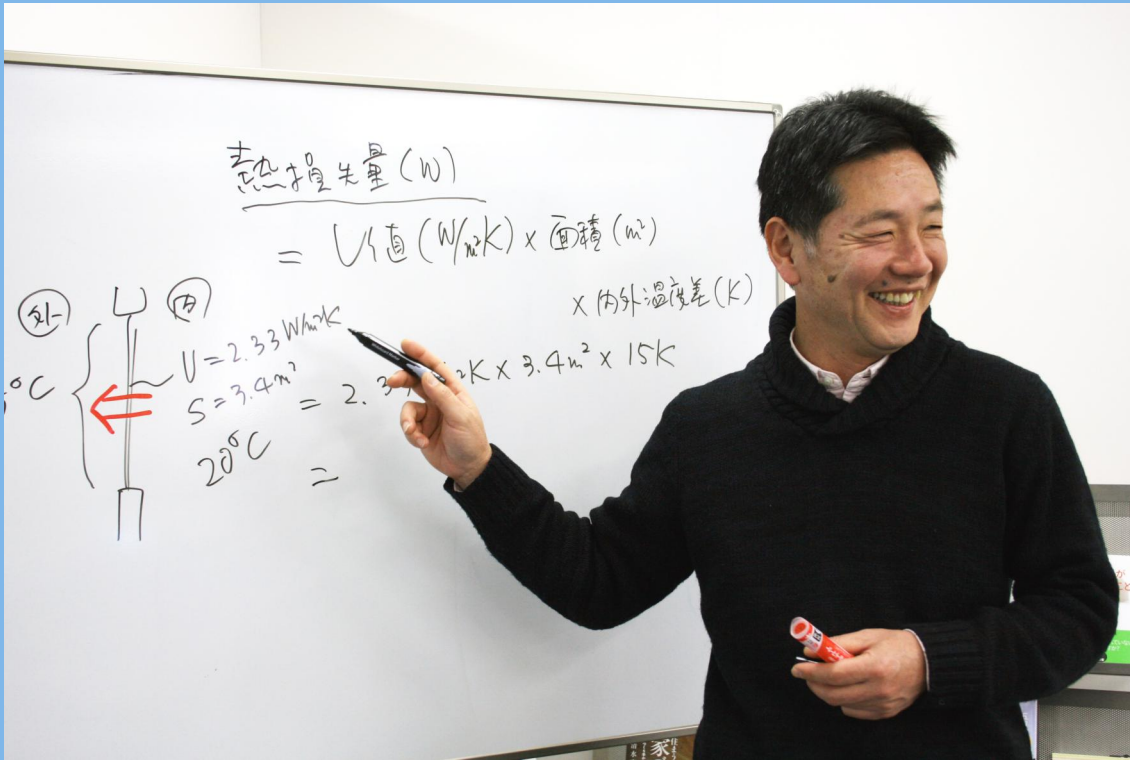 熱損失量(W)
= U値(W/m²K) × 面積(m²)
× 内外温度差(K)
外
内
U=2.33W/m²K
S=3.4m²
= 2.3 m²K × 3.4m² × 15K
°C
20°C
=
家